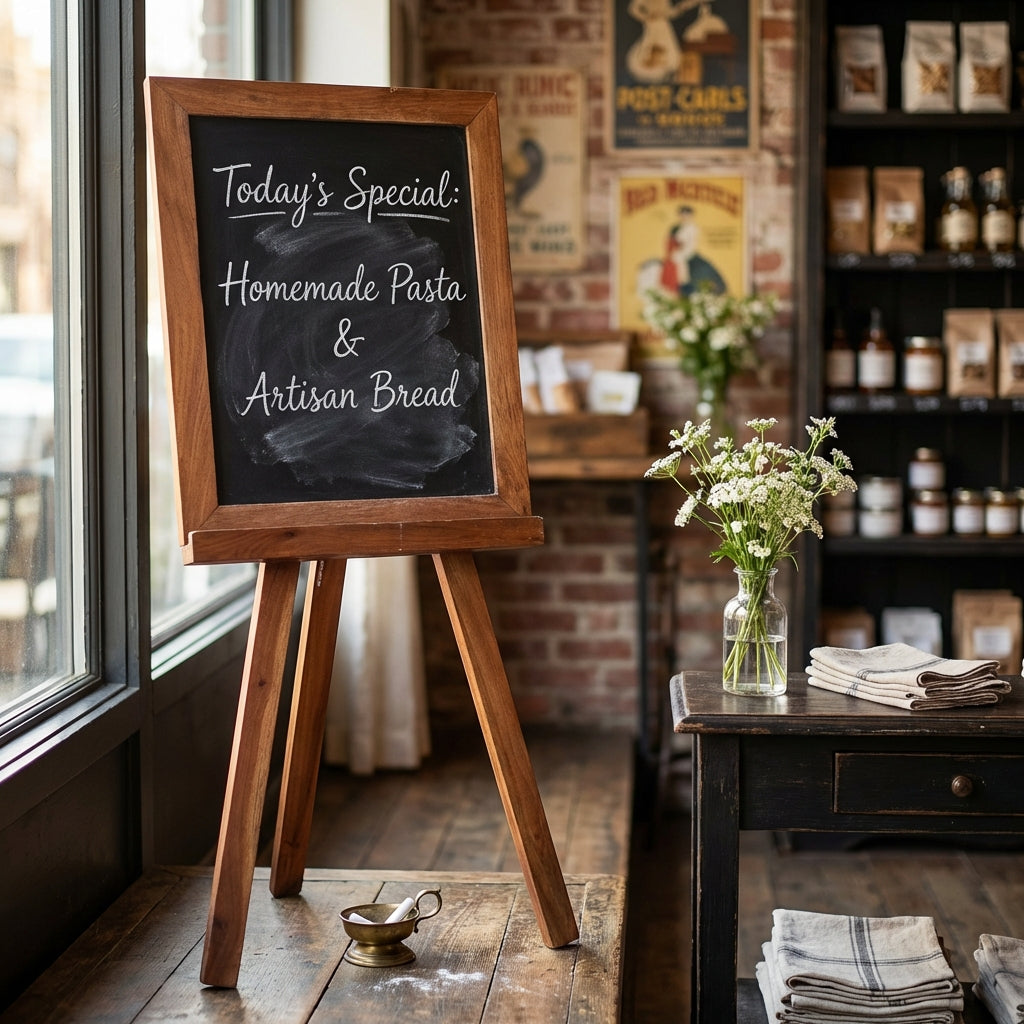 Today's Special:
Homemade Pasta
&
Artisan Bread
POST-CARLS